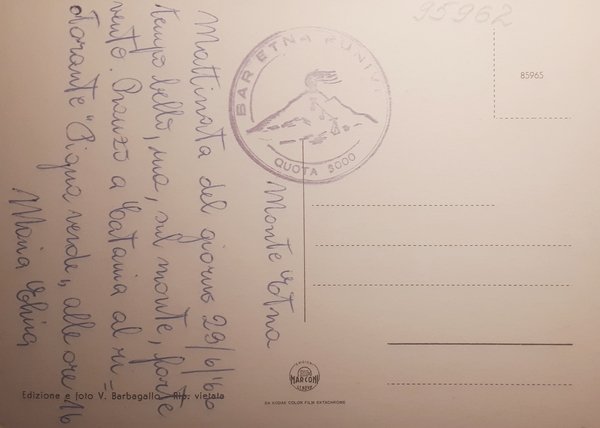 95962
85965
BAR ETNA FUNIVI
QUOTA 3000
Monte Etna
Mattinata del giorno 29/6/60
tempo bello, ma, sul monte, forte
vento. Pranzo a Catania al ri=
storante "Pigna verde„ alle ore 16
Maria
MARCONI
GENOVA
DA KODAK COLOR FILM EKTACHROME
Edizione e foto V. Barbagallo - Rip. vietata